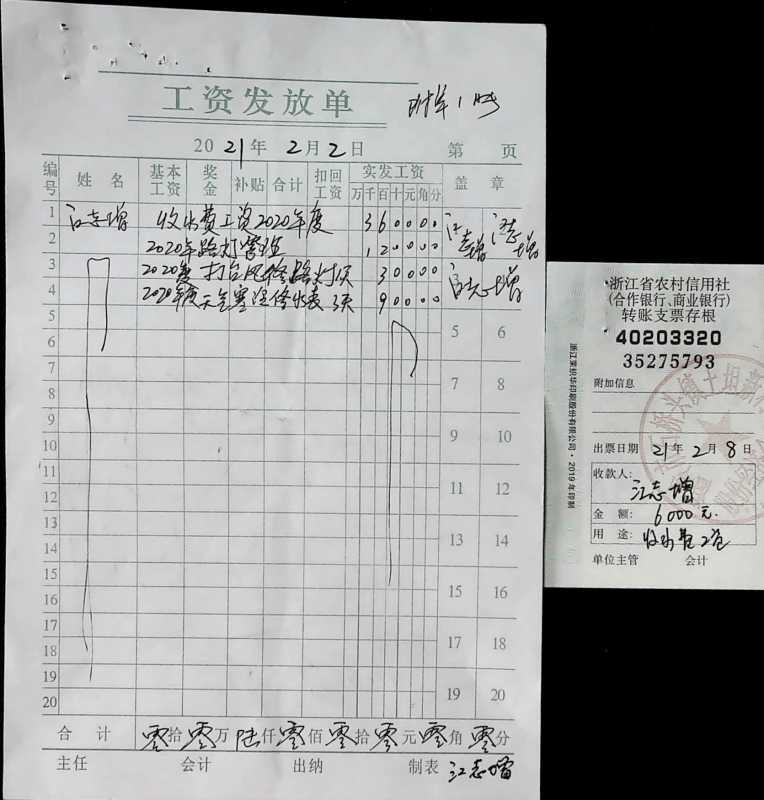 工资发放单
附单1张
2021年2月2日 第 页
编号 姓名 基本工资 奖金 补贴 合计 扣回工资 实发工资 盖章
万 千 百 十 元 角 分
1 江志增 收水费工资2020年度 360000 江志增 江志增
2 2020年路灯管理 120000
3 2020年度 打台风修路灯 30000 江志增
4 2020年度天气寒冷修水表 3天 90000
5 5 6
6
7 7 8
8
9 9 10
10
11 11 12
12
13 13 14
14
15 15 16
16
17 17 18
18
19 19 20
20
合计 零拾零万陆仟零佰零拾零元零角零分
主任 会计 出纳 制表 江志增
浙江省农村信用社
(合作银行、商业银行)
转账支票存根
40203320
35275793
附加信息
出票日期 21年2月8日
收款人:
江志增
金额: 6000元.
用途: 收水费工资
单位主管 会计
2019年印制